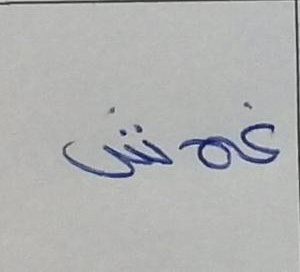 غمش